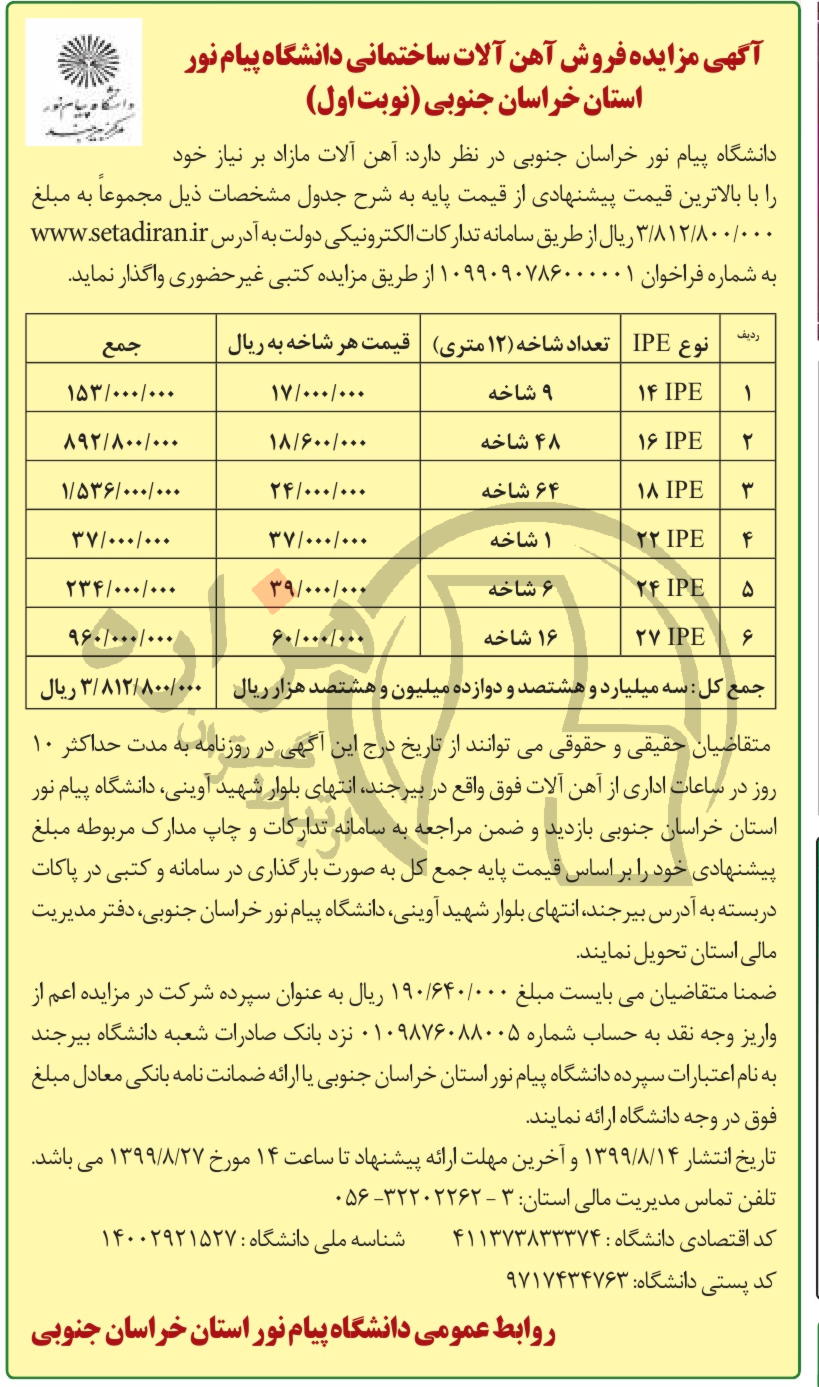 دانشگاه پیام نور
مرکز بیرجند
آگهی مزایده فروش آهن آلات ساختمانی دانشگاه پیام نور
استان خراسان جنوبی (نوبت اول)
دانشگاه پیام نور خراسان جنوبی در نظر دارد: آهن آلات مازاد بر نیاز خود
را با بالاترین قیمت پیشنهادی از قیمت پایه به شرح جدول مشخصات ذیل مجموعاً به مبلغ
۳/۸۱۲/۸۰۰/۰۰۰ ریال از طریق سامانه تدارکات الکترونیکی دولت به آدرس www.setadiran.ir
به شماره فراخوان ۱۰۹۹۰۹۰۷۸۶۰۰۰۰۰۱ از طریق مزایده کتبی غیرحضوری واگذار نماید.
ردیف نوع IPE تعداد شاخه (۱۲ متری) قیمت هر شاخه به ریال جمع
۱ IPE ۱۴ ۹ شاخه ۱۷/۰۰۰/۰۰۰ ۱۵۳/۰۰۰/۰۰۰
۲ IPE ۱۶ ۴۸ شاخه ۱۸/۶۰۰/۰۰۰ ۸۹۲/۸۰۰/۰۰۰
۳ IPE ۱۸ ۶۴ شاخه ۲۴/۰۰۰/۰۰۰ ۱/۵۳۶/۰۰۰/۰۰۰
۴ IPE ۲۲ ۱ شاخه ۳۷/۰۰۰/۰۰۰ ۳۷/۰۰۰/۰۰۰
۵ IPE ۲۴ ۶ شاخه ۳۹/۰۰۰/۰۰۰ ۲۳۴/۰۰۰/۰۰۰
۶ IPE ۲۷ ۱۶ شاخه ۶۰/۰۰۰/۰۰۰ ۹۶۰/۰۰۰/۰۰۰
جمع کل: سه میلیارد و هشتصد و دوازده میلیون و هشتصد هزار ریال ۳/۸۱۲/۸۰۰/۰۰۰ ریال
متقاضیان حقیقی و حقوقی می توانند از تاریخ درج این آگهی در روزنامه به مدت حداکثر ۱۰
روز در ساعات اداری از آهن آلات فوق واقع در بیرجند، انتهای بلوار شهید آوینی، دانشگاه پیام نور
استان خراسان جنوبی بازدید و ضمن مراجعه به سامانه تدارکات و چاپ مدارک مربوطه مبلغ
پیشنهادی خود را بر اساس قیمت پایه جمع کل به صورت بارگذاری در سامانه و کتبی در پاکات
دربسته به آدرس بیرجند، انتهای بلوار شهید آوینی، دانشگاه پیام نور خراسان جنوبی، دفتر مدیریت
مالی استان تحویل نمایند.
ضمنا متقاضیان می بایست مبلغ ۱۹۰/۶۴۰/۰۰۰ ریال به عنوان سپرده شرکت در مزایده اعم از
واریز وجه نقد به حساب شماره ۰۱۰۹۸۷۶۰۸۸۰۰۵ نزد بانک صادرات شعبه دانشگاه بیرجند
به نام اعتبارات سپرده دانشگاه پیام نور استان خراسان جنوبی یا ارائه ضمانت نامه بانکی معادل مبلغ
فوق در وجه دانشگاه ارائه نمایند.
تاریخ انتشار ۱۳۹۹/۸/۱۴ و آخرین مهلت ارائه پیشنهاد تا ساعت ۱۴ مورخ ۱۳۹۹/۸/۲۷ می باشد.
تلفن تماس مدیریت مالی استان: ۳ - ۳۲۲۰۲۲۶۲- ۰۵۶
کد اقتصادی دانشگاه : ۴۱۱۳۷۳۸۳۳۳۷۴ شناسه ملی دانشگاه : ۱۴۰۰۲۹۲۱۵۲۷
کد پستی دانشگاه: ۹۷۱۷۴۳۴۷۶۳
روابط عمومی دانشگاه پیام نور استان خراسان جنوبی
هزاره